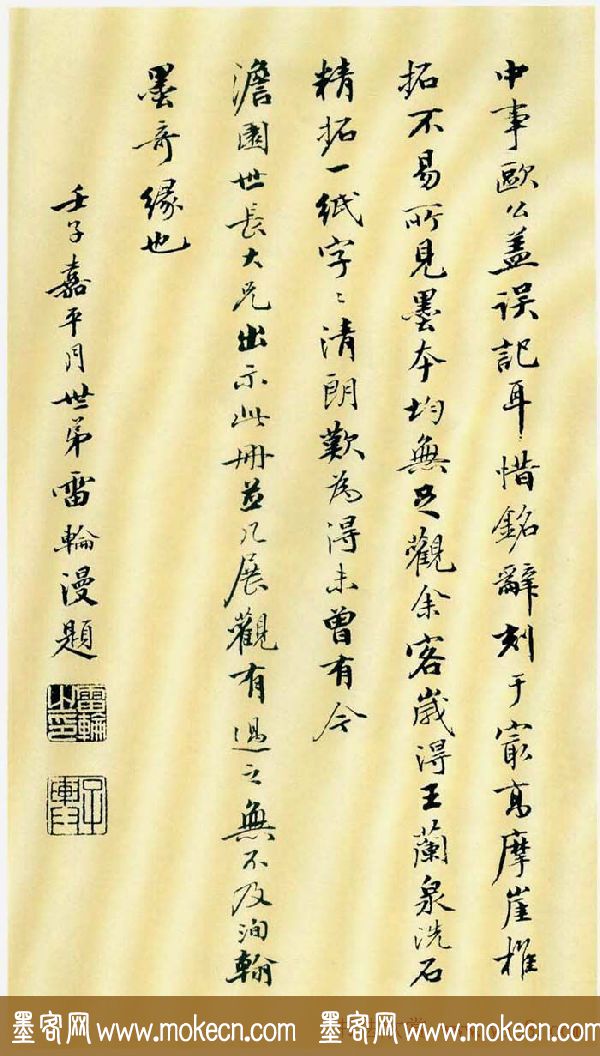 中事歐公蓋误記耳惜銘辭刻于㝡高摩崖椎
拓不易所見墨本均無足觀余客歲得王蘭泉洗石
精拓一紙字〻清朗歎為得未曾有今
澹園世長大兄出示此册並几展觀有過之無不及洵翰
墨奇緣也
壬子嘉平月世弟雷輪漫題
雷輪
墨客网 www.mokecn.com 墨客网 www.mokecn.com